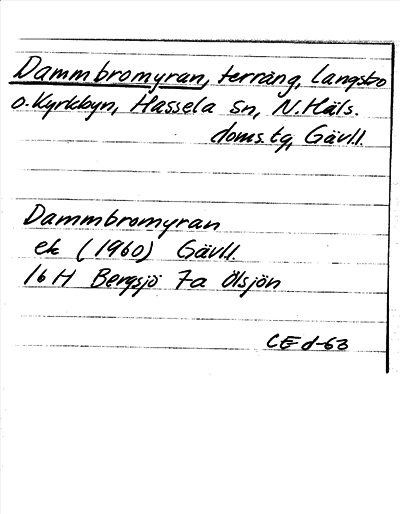 Dammbromyran, terräng, Långsbo
o. Kyrkbyn, Hassela sn, N. Häls.
doms.tg, Gävl.l.
Dammbromyran
ek (1960) Gävl.l.
16 H Bergsjö 7a Ölsjön
CE d-63